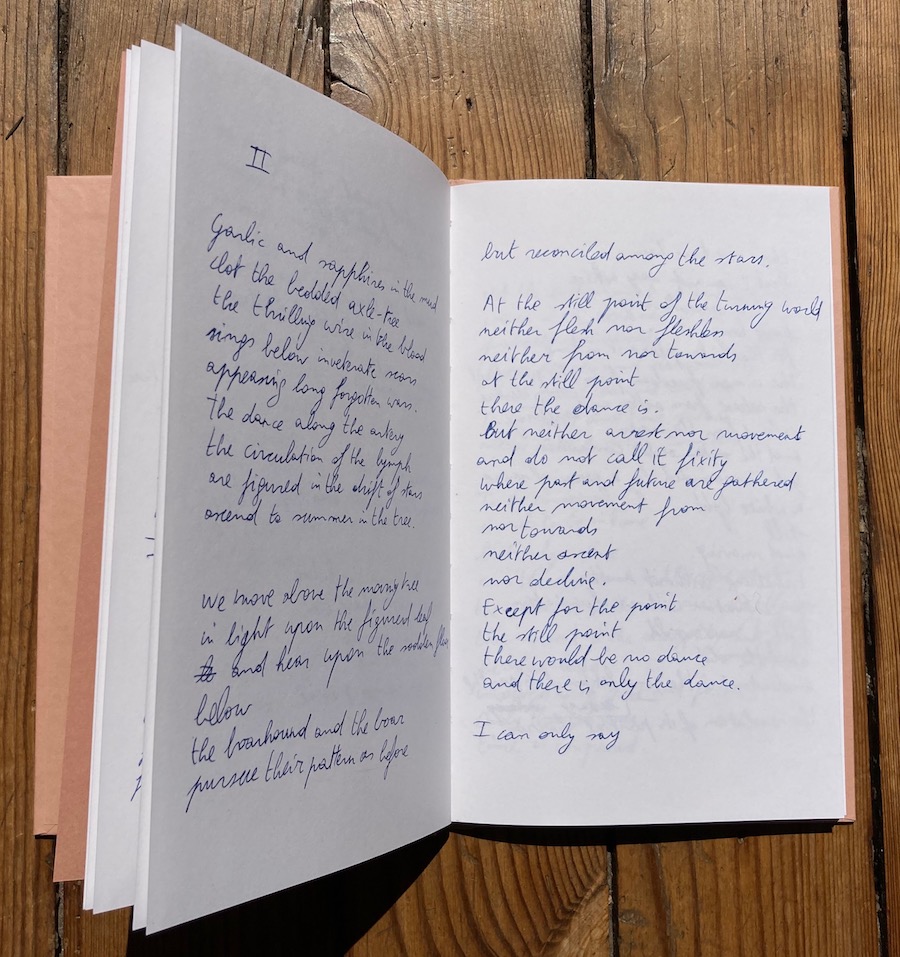 II
Garlic and sapphires in the mud
clot the bedded axle-tree
the thrilling wire in the blood
sings below inveterate scars
appeasing long forgotten wars.
The dance along the artery
the circulation of the lymph
are figured in the drift of stars
ascend to summer in the tree.
we move above the moving tree
in light upon the figured leaf
and hear upon the sodden floor
below
the boarhound and the boar
pursue their pattern as before
but reconciled among the stars.
At the still point of the turning world
neither flesh nor fleshless
neither from nor towards
at the still point
there the dance is.
But neither arrest nor movement
and do not call it fixity
where past and future are gathered
neither movement from
nor towards
neither ascent
nor decline.
Except for the point
the still point
there would be no dance
and there is only the dance.
I can only say